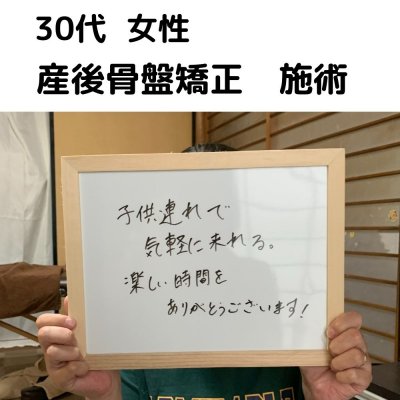 30代 女性
産後骨盤矯正 施術
子供連れで
気軽に来れる。
楽しい時間を
ありがとうございます!